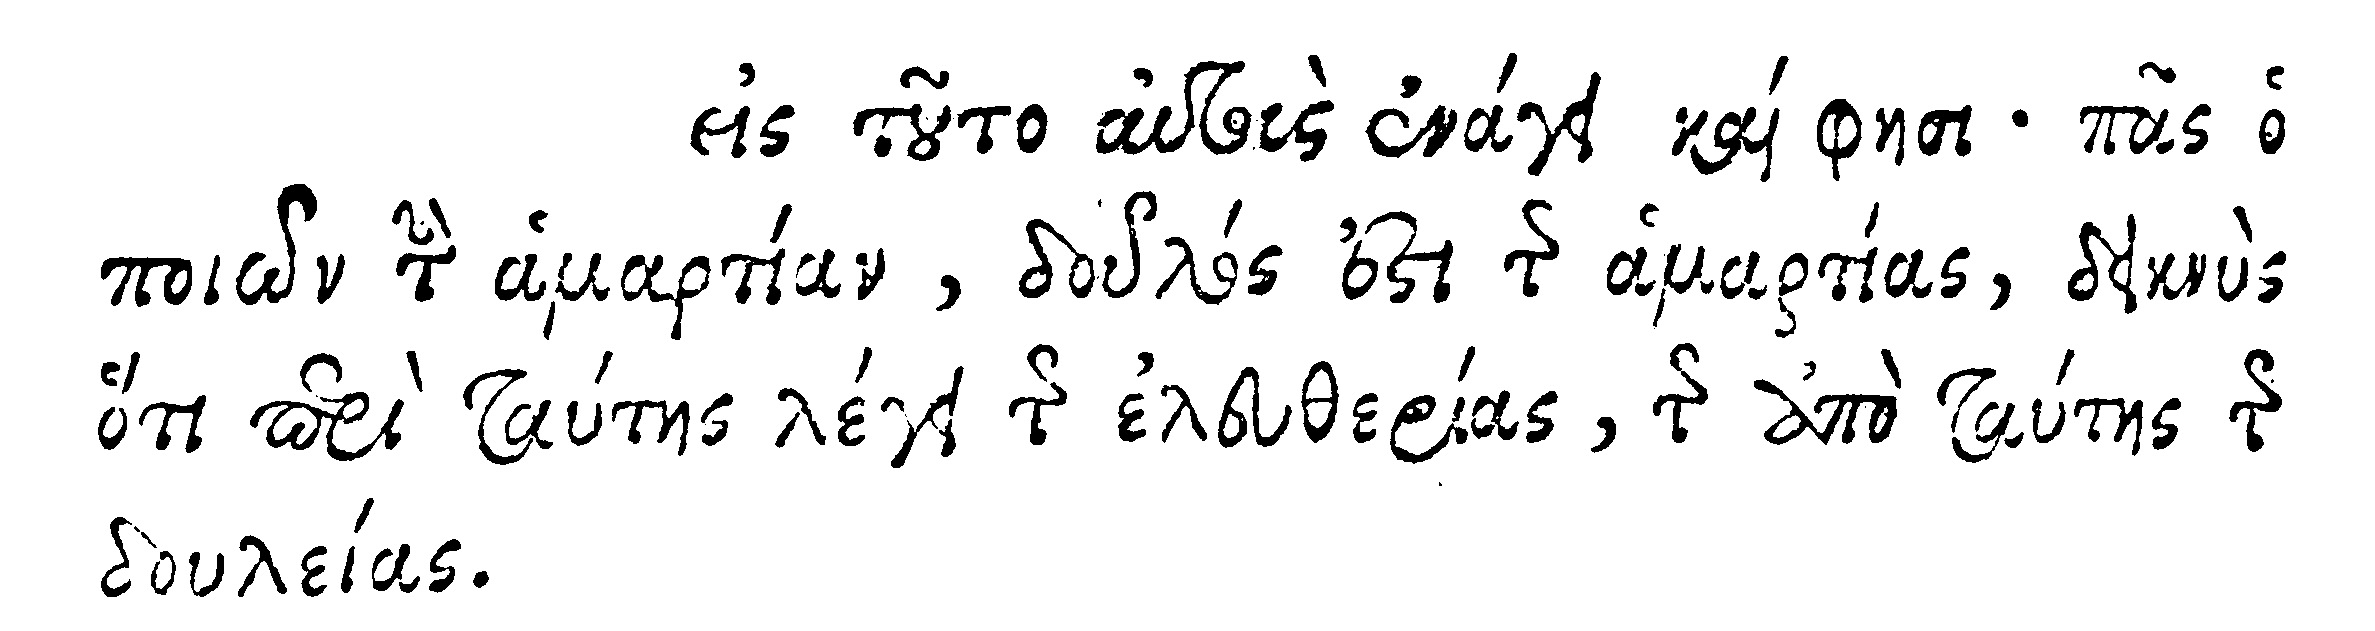 εἰς τοῦτο αὐτοὺς ἐνάγει καί φησι· πᾶς ὁ
ποιῶν τὴν ἁμαρτίαν, δοῦλός ἐστι τῆς ἁμαρτίας, δεικνὺς
ὅτι περὶ ταύτης λέγει τῆς ἐλευθερίας, τῆς ἀπὸ ταύτης τῆς
δουλείας.